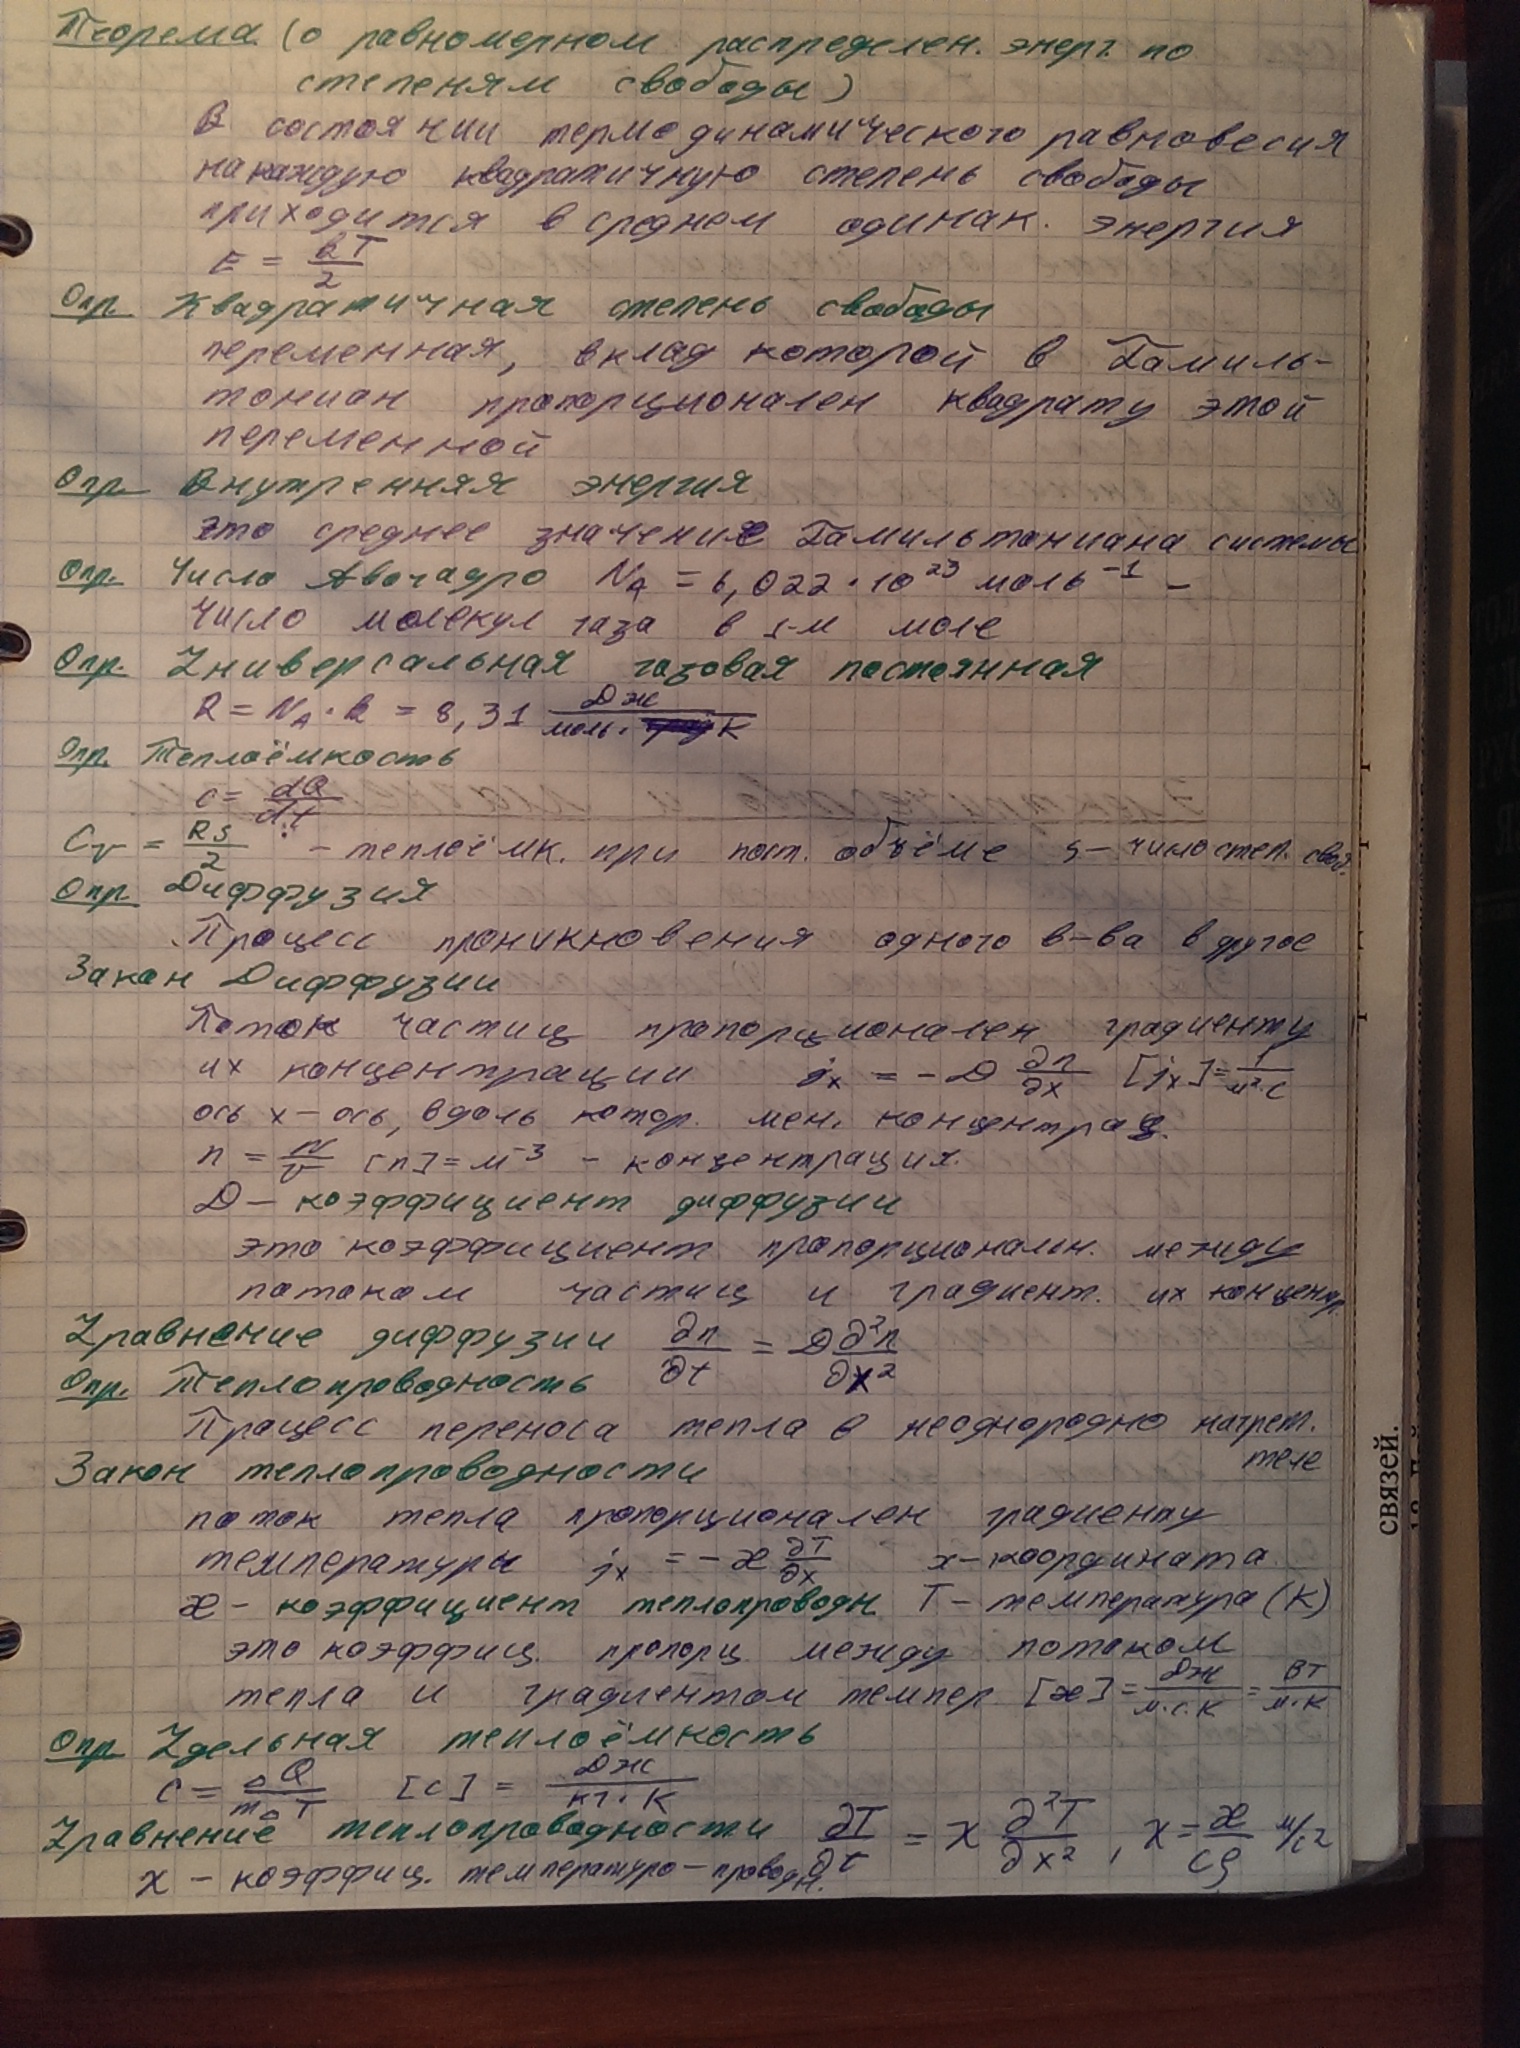 Теорема (о равномерном распределен. энерг. по
степеням свободы)
В состоянии термодинамического равновесия
на каждую квадратичную степень свободы
приходится в среднем одинак. энергия
E = kT/2
Опр. Квадратичная степень свободы
переменная, вклад которой в Гамиль-
тониан пропорционален квадрату этой
переменной
Опр. Внутренняя энергия
это среднее значение Гамильтониана системы
Опр. Число Авогадро N_A = 6,022 · 10^23 моль^-1 –
число молекул газа в 1-м моле
Опр. Универсальная газовая постоянная
R = N_A · k = 8,31 Дж/моль · К
Опр. Теплоёмкость
c = dQ/dt
C_v = RS/2 – теплоёмк. при пост. объёме s – число степ. своб.
Опр. Диффузия
Процесс проникновения одного в-ва в другое
Закон Диффузии
Поток частиц пропорционален градиенту
их концентрации j_x = -D ∂n/∂x [j_x] = 1/м²·с
ось x – ось, вдоль котор. мен. концентрац.
n = N/V [n] = м^-3 – концентрация.
D – коэффициент диффузии
это коэффициент пропорционалн. между
потоком частиц и градиент. их концентр.
Уравнение диффузии ∂n/∂t = D ∂²n/∂x²
Опр. Теплопроводность
Процесс переноса тепла в неоднородно нагрет.
теле
Закон теплопроводности
поток тепла пропорционален градиенту
температуры j_x = -æ ∂T/∂x x – координата
æ – коэффициент теплопроводн. T – температура (К)
это коэффиц. пропорц. между потоком
тепла и градиентом темпер. [æ] = Дж/м·с·К = Вт/м·К
Опр. Удельная теплоёмкость
c = ΔQ/mΔT [c] = Дж/кг·К
Уравнение теплопроводности ∂T/∂t = χ ∂²T/∂x² , χ = æ/cρ м/с2
χ – коэффиц. температуро-проводн.
связей.